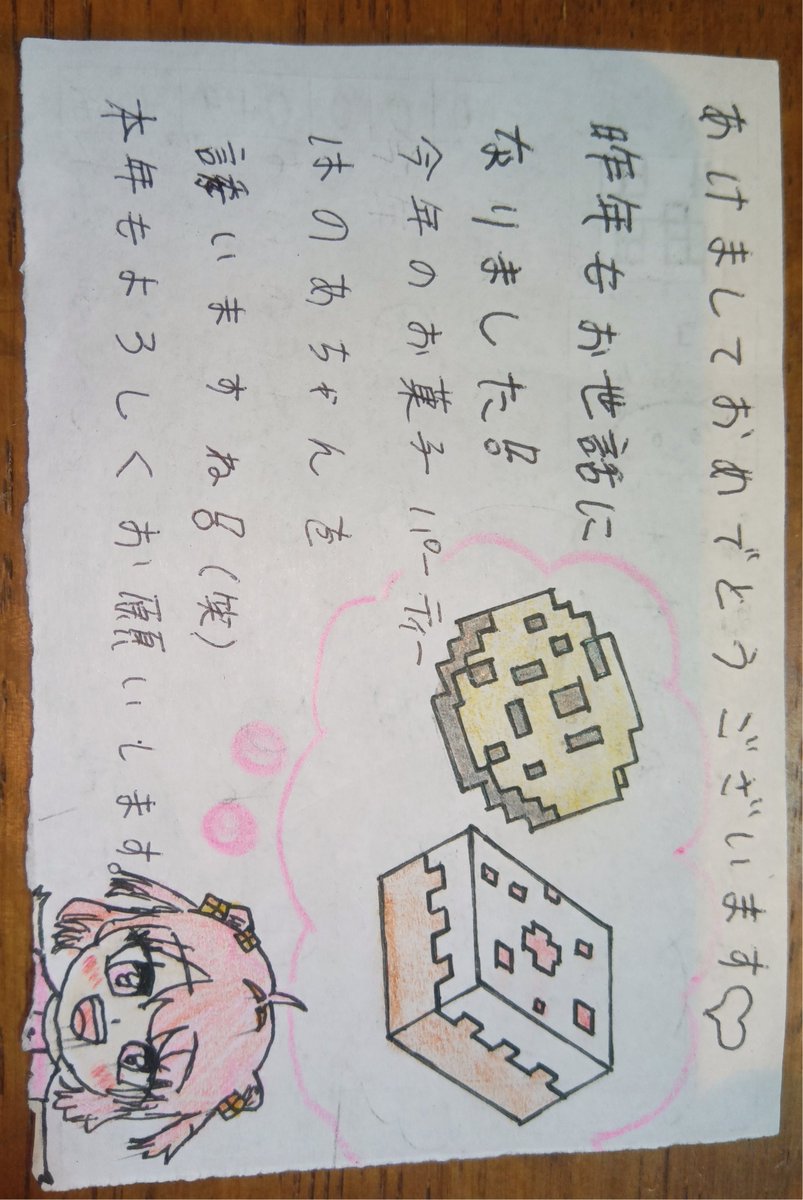 あけましておめでとうございます♡
昨年もお世話に
なりました!!
今年のお菓子パーティー
はのあちゃんを
誘いますね!!(笑)
本年もよろしくお願いします。